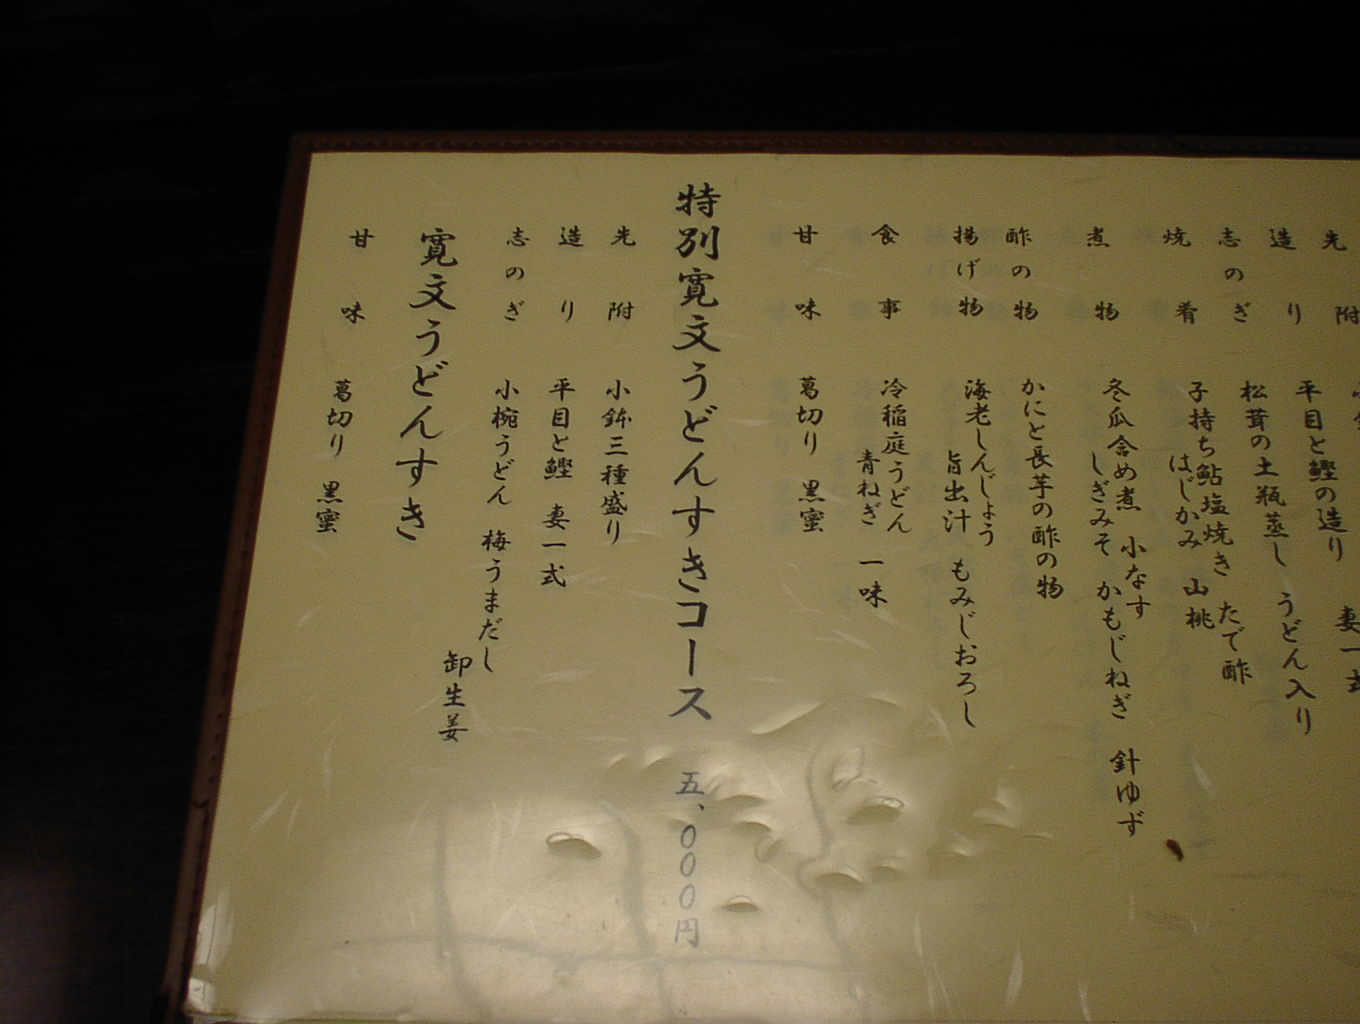 先附
造り 平目と鰹の造り 妻一式
志のぎ 松茸の土瓶蒸し うどん入り
焼肴 子持ち鮎塩焼き たで酢
はじかみ 山桃
煮物 冬瓜含め煮 小なす
しぎみそ かもじねぎ 針ゆず
酢の物 かにと長芋の酢の物
揚げ物 海老しんじょう
旨出汁 もみじおろし
食事 冷稲庭うどん
青ねぎ 一味
甘味 葛切り 黒蜜
特別寛文うどんすきコース 五、000円
先附 小鉢三種盛り
造り 平目と鰹 妻一式
志のぎ 小椀うどん 梅うまだし
卸生姜
寛文うどんすき
甘味 葛切り 黒蜜